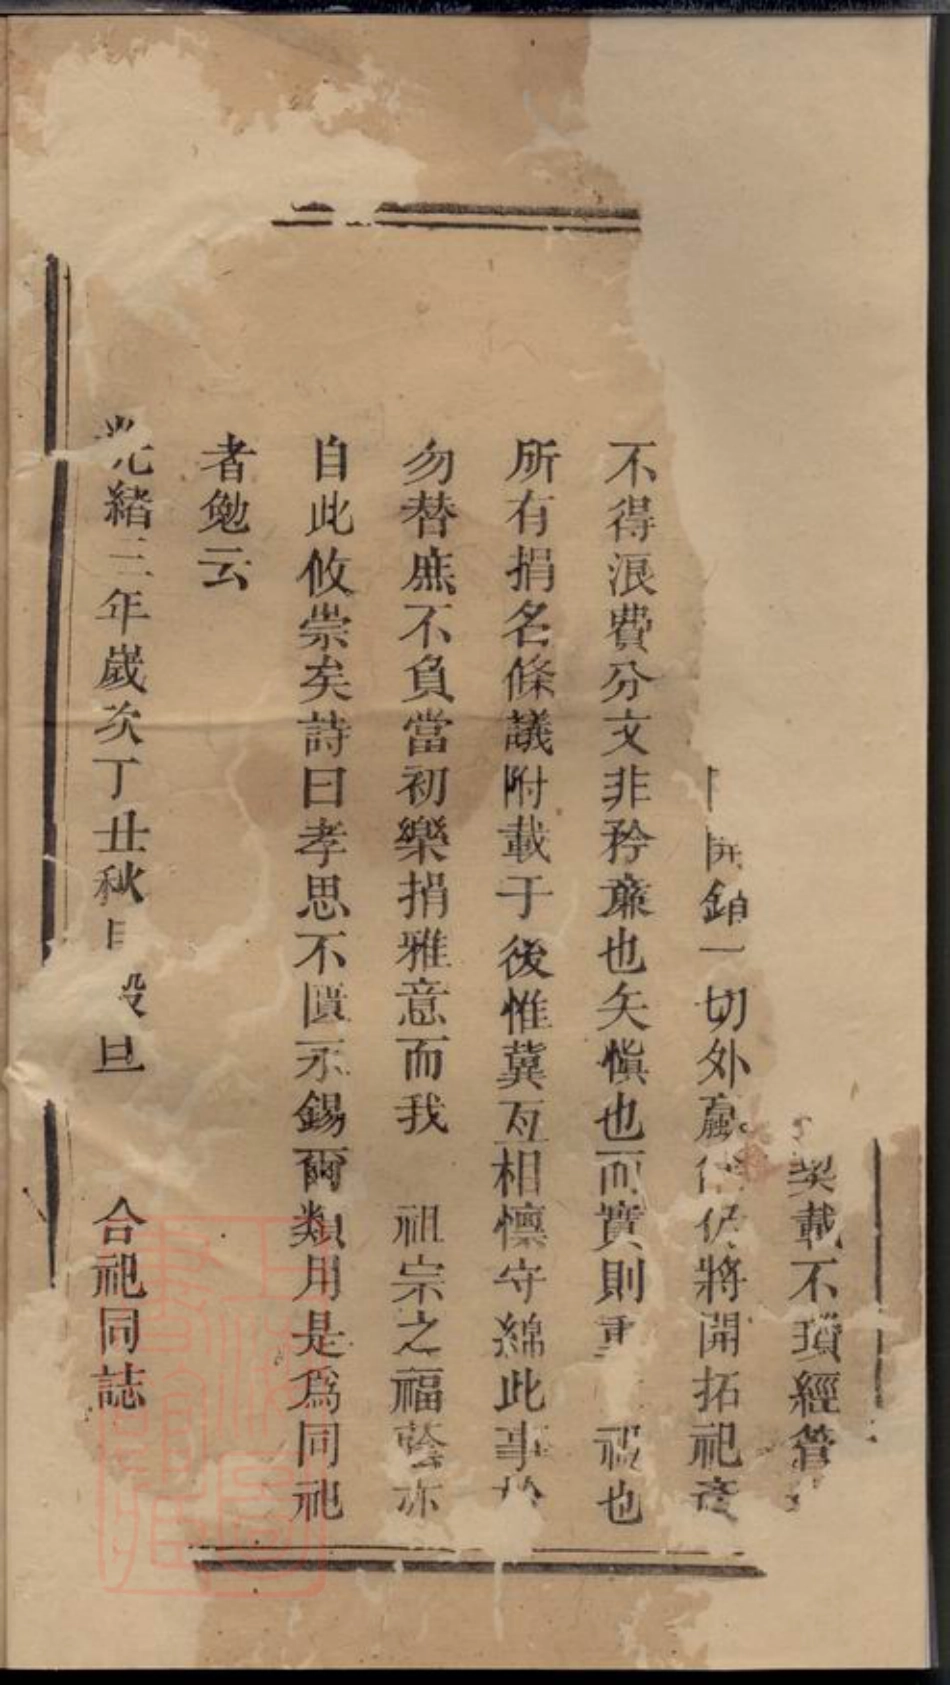 契載不瑣經管
開銷一切外羸仍將開拓祀產
不得浪費分文非矜廉也矢愼也而實則重祀也
所有捐名條議附載于後惟冀互相懍守綿此事於
勿替庶不負當初樂捐雅意而我　祖宗之福蔭亦
自此攸崇矣詩曰孝思不匱永錫爾類用是爲同祀
者勉云
光緒三年歲次丁丑秋月穀旦　合祀同誌